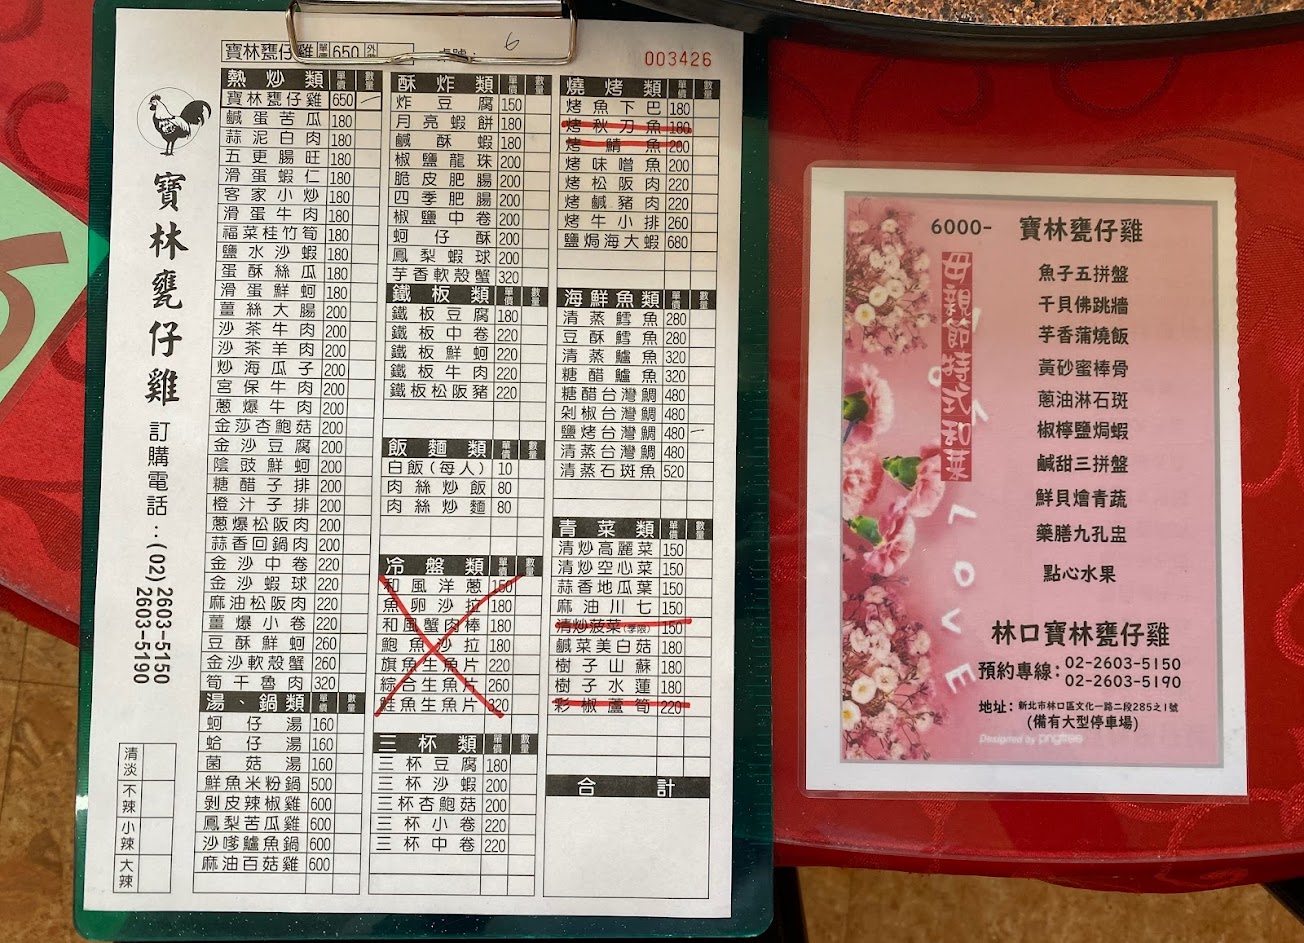 寶林甕仔雞 單價 650
6
003426
寶林甕仔雞
訂購電話:(02)2603-5150
2603-5190
清淡
不辣
小辣
大辣
熱炒類 單價 數量
寶林甕仔雞 650
鹹蛋苦瓜 180
蒜泥白肉 180
五更腸旺 180
滑蛋蝦仁 180
客家小炒 180
滑蛋牛肉 180
福菜桂竹筍 180
鹽水沙蝦 180
蛋酥絲瓜 180
滑蛋鮮蚵 180
薑絲大腸 200
沙茶牛肉 200
沙茶羊肉 200
炒海瓜子 200
宮保牛肉 200
蔥爆牛肉 200
金莎杏鮑菇 200
金沙豆腐 200
陰豉鮮蚵 200
糖醋子排 200
橙汁子排 200
蔥爆松阪肉 200
蒜香回鍋肉 200
金沙中卷 220
金沙蝦球 220
麻油松阪肉 220
薑爆小卷 220
豆酥鮮蚵 260
金沙軟殼蟹 260
筍干魯肉 320
湯、鍋類 單價 數量
蚵仔湯 160
蛤仔湯 160
菌菇湯 160
鮮魚米粉鍋 500
剝皮辣椒雞 600
鳳梨苦瓜雞 600
沙嗲鱸魚鍋 600
麻油百菇雞 600
酥炸類 單價 數量
炸豆腐 150
月亮蝦餅 180
鹹酥蝦 180
椒鹽龍珠 200
脆皮肥腸 200
四季肥腸 200
椒鹽中卷 200
蚵仔酥 200
鳳梨蝦球 200
芋香軟殼蟹 320
鐵板類 單價 數量
鐵板豆腐 180
鐵板中卷 220
鐵板鮮蚵 220
鐵板牛肉 220
鐵板松阪豬 220
飯麵類 單價 數量
白飯(每人) 10
肉絲炒飯 80
肉絲炒麵 80
冷盤類 單價 數量
和風洋蔥 150
魚卵沙拉 180
和風蟹肉棒 180
鮑魚沙拉 180
旗魚生魚片 220
綜合生魚片 260
鮭魚生魚片 320
三杯類 單價 數量
三杯豆腐 180
三杯沙蝦 200
三杯杏鮑菇 200
三杯小卷 220
三杯中卷 220
燒烤類 單價 數量
烤魚下巴 180
烤秋刀魚 180
烤鯖魚 200
烤味噌魚 200
烤松阪肉 220
烤鹹豬肉 220
烤牛小排 260
鹽焗海大蝦 680
海鮮魚類 單價 數量
清蒸鱈魚 280
豆酥鱈魚 280
清蒸鱸魚 320
糖醋鱸魚 320
糖醋台灣鯛 480
剁椒台灣鯛 480
鹽烤台灣鯛 480
清蒸台灣鯛 480
清蒸石斑魚 520
青菜類 單價 數量
清炒高麗菜 150
清炒空心菜 150
蒜香地瓜葉 150
麻油川七 150
清炒菠菜(季限) 150
鹹菜美白菇 180
樹子山蘇 180
樹子水蓮 180
彩椒蘆筍 220
合計
6000- 寶林甕仔雞
母親節特式和菜
魚子五拼盤
干貝佛跳牆
芋香蒲燒飯
黃砂蜜棒骨
蔥油淋石斑
椒檸鹽焗蝦
鹹甜三拼盤
鮮貝燴青蔬
藥膳九孔盅
點心水果
LOVE
林口寶林甕仔雞
預約專線:02-2603-5150
02-2603-5190
地址:新北市林口區文化一路二段285之1號
(備有大型停車場)
Designed by pngtree